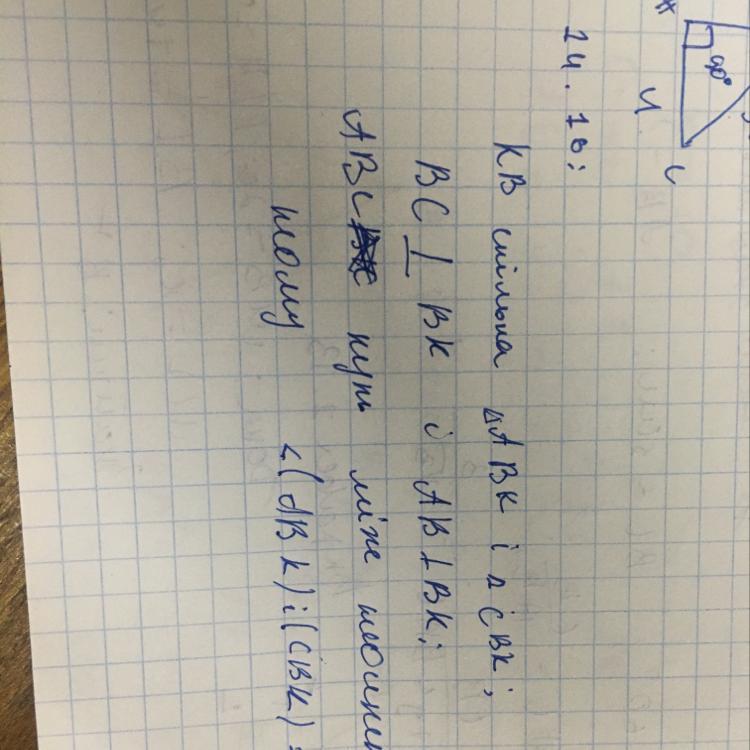 90°
C
4
14.10:
KB спільна △ABK і △CBK;
BC ⊥ BK і AB ⊥ BK;
ABC кут між
тому ∠(ABK) і (CBK) =